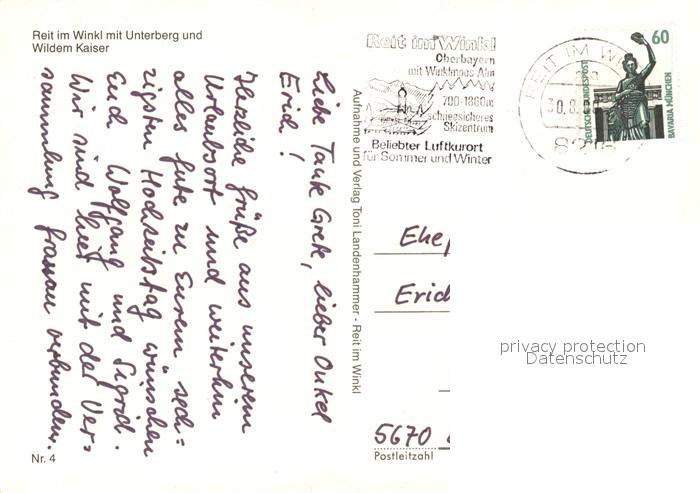 Reit im Winkl mit Unterberg und
Wildem Kaiser
Liebe Tante Grete, lieber Onkel
Erich!
Herzliche Grüße aus unserem
Urlaubsort und weiterhin
alles Gute zu Eurem sech=
zigsten Hochzeitstag wünschen
Euch Wolfgang und Sigrid.
Wir sind hier mit der Ver=
sammlung frauau verbunden.
Nr. 4
Aufnahme und Verlag Toni Landenhammer - Reit im Winkl
Reit im Winkl
Oberbayern
mit Winklmoos Alm
700-1860m
schneesicheres
Skizentrum
Beliebter Luftkurort
für Sommer und Winter
REIT IM W
30.8.
8216
60
DEUTSCHE BUNDESPOST
BAVARIA MÜNCHEN
Ehe
Erich
5670
Postleitzahl
privacy protection
Datenschutz